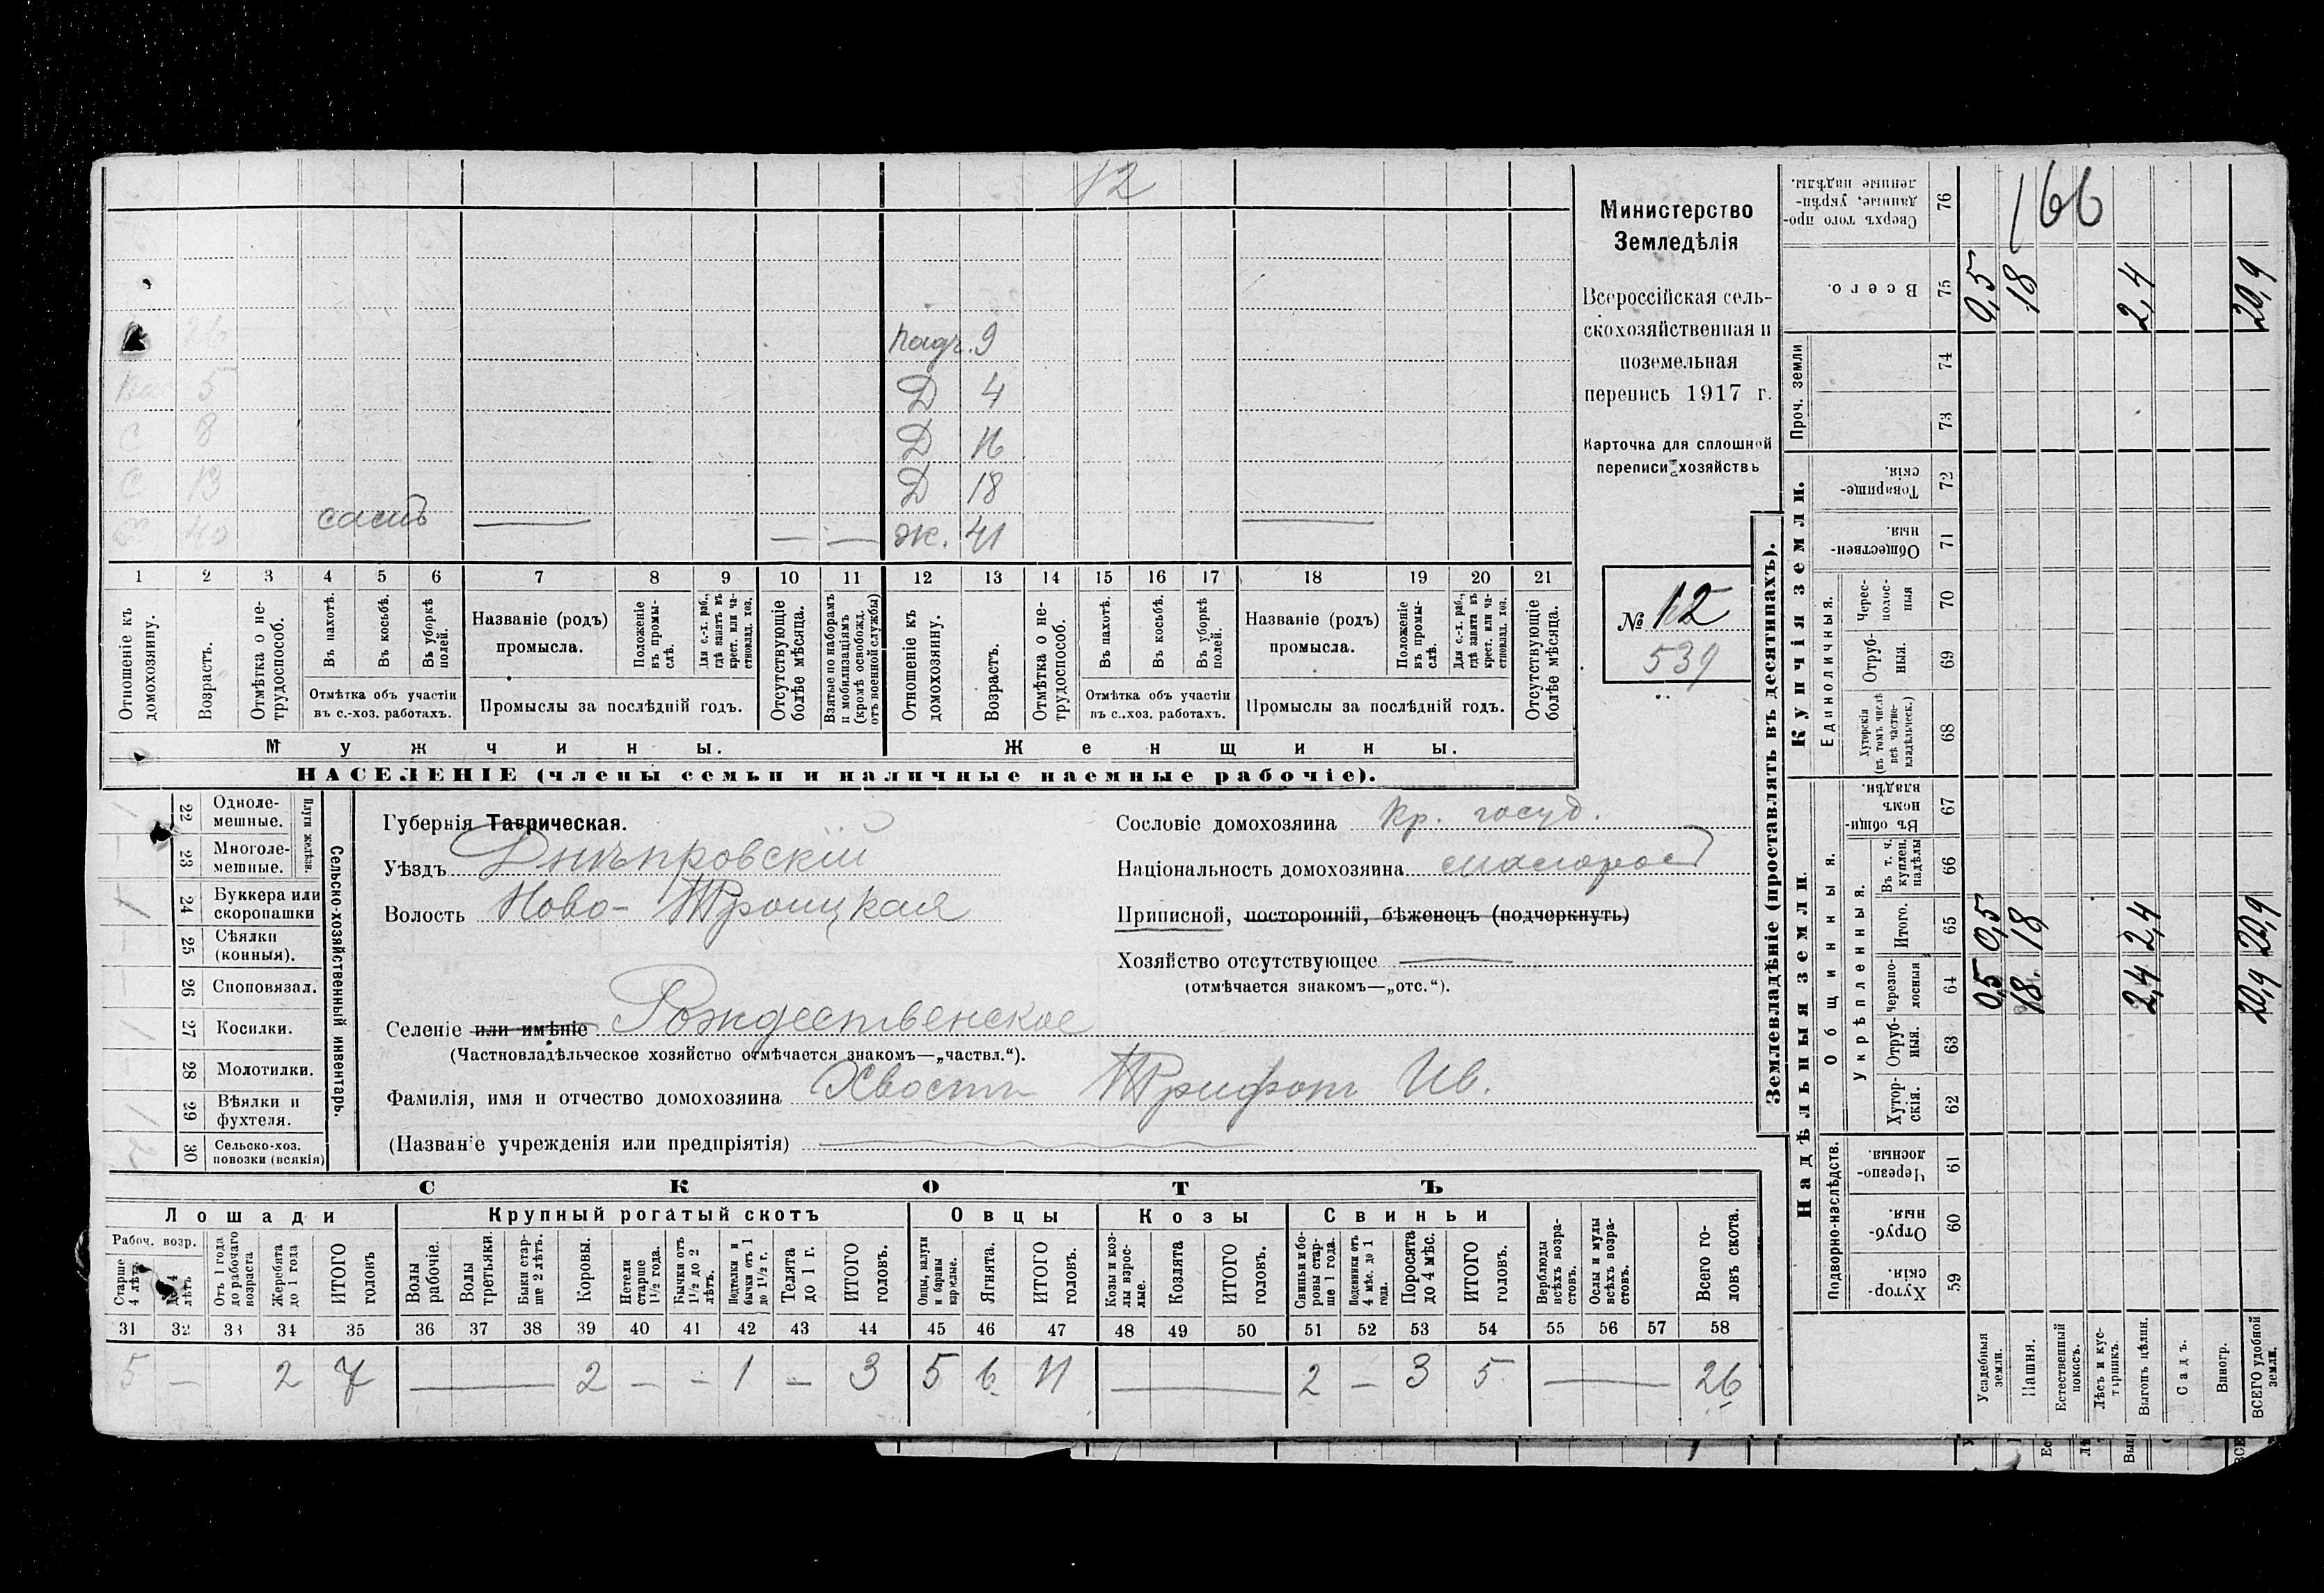 12
Министерство
Земледѣлія
Всероссійская сель-
скохозяйственная и
поземельная
перепись 1917 г.
Карточка для сплошной
переписи хозяйствъ
№ 12
539
26
5
С 8
С 13
Х 40 самъ — — —
падч. 9
Д 4
Д 16
Д 18
ж. 41 —
1 2 3 4 5 6 7 8 9 10 11 12 13 14 15 16 17 18 19 20 21
Отношеніе къ домохозяину.
Возрастъ.
Отмѣтка о не-трудоспособ.
Въ пахотѣ.
Въ косьбѣ.
Въ уборкѣ полей.
Отмѣтка объ участіи
въ с.-хоз. работахъ.
Названіе (родъ)
промысла.
Положеніе въ промы-слѣ.
Для с.-х. раб., гдѣ занятъ въ крест. или ча-стновлад. хоз.
Промыслы за послѣдній годъ.
Отсутствующіе болѣе мѣсяца.
Взятые по наборамъ и мобилизаціямъ (кромѣ освобожд. отъ военной службы)
Отношеніе къ домохозяину.
Возрастъ.
Отмѣтка о не-трудоспособ.
Въ пахотѣ.
Въ косьбѣ.
Въ уборкѣ полей.
Отмѣтка объ участіи
въ с.-хоз. работахъ.
Названіе (родъ)
промысла.
Положеніе въ промы-слѣ.
Для с.-х. раб., гдѣ занята въ крест. или ча-стновлад. хоз.
Промыслы за послѣдній годъ.
Отсутствующіе болѣе мѣсяца.
Мужчины.
Женщины.
НАСЕЛЕНІЕ (члены семьи и наличные наемные рабочіе).
Сельско-хозяйственный инвентарь.
Плуги желѣзн.
22 Одноле-мешные.
23 Многоле-мешные.
24 Буккера или скоропашки
25 Сѣялки (конныя).
26 Сноповязал.
27 Косилки.
28 Молотилки.
29 Вѣялки и фухтеля.
30 Сельско-хоз. повозки (всякія)
Губернія Таврическая.
Уѣздъ Днѣпровскій
Волость Ново-Троицкая
Селеніе или имѣніе Рождественское
(Частновладѣльческое хозяйство отмѣчается знакомъ—„частвл.“).
Фамилія, имя и отчество домохозяина Хвостъ Трифонъ Ив.
(Названіе учрежденія или предпріятія)
Сословіе домохозяина Кр. госуд.
Національность домохозяина малорос
Приписной, посторонній, бѣженецъ (подчеркнуть)
Хозяйство отсутствующее —
(отмѣчается знакомъ—„отс.“).
СКОТЪ
Лошади
Крупный рогатый скотъ
Овцы
Козы
Свиньи
Рабоч. возр.
Старше 4 лѣтъ
до 4 лѣтъ
Отъ 1 года до рабочаго возраста
Жеребята до 1 года
ИТОГО головъ
Волы рабочіе.
Волы третьяки.
Быки стар-ше 2 лѣтъ.
Коровы.
Нетели старше 1½ года.
Бычки отъ 1½ до 2 лѣтъ.
Подтелки и бычки отъ 1 до 1½ г.
Телята до 1 г.
ИТОГО головъ.
Овцы, валухи и бараны взрослые.
Ягнята.
ИТОГО головъ.
Козы и коз-лы взрос-лые.
Козлята
ИТОГО головъ.
Свиньи и бо-ровы стар-ше 1 года.
Подсвинки отъ 4 мѣс. до 1 года.
Поросята до 4 мѣс.
ИТОГО головъ.
Верблюды всѣхъ возра-стовъ.
Ослы и мулы всѣхъ возра-стовъ.
Всего го-ловъ скота.
31 32 33 34 35 36 37 38 39 40 41 42 43 44 45 46 47 48 49 50 51 52 53 54 55 56 57 58
5 — 2 7 — 2 — — 1 — 3 5 6 11 — 2 — 3 5 — 26
Землевладѣніе (проставлять въ десятинахъ).
Надѣльныя земли.
Купчія земли.
Проч. земли
Подворно-наслѣдств.
Общинныя.
Укрѣпленныя.
Единоличныя.
Хутор-скія. 59
Отруб-ныя. 60
Черезпо-лосныя. 61
Хутор-скія. 62
Отруб-ныя. 63
Черезпо-лосныя 64
Итого. 65
Въ т. ч. куплен. надѣлы 66
Въ общин-номъ владѣн. 67
Хуторскія (въ томъ числѣ всѣ частно-владѣльческ.) 68
Отруб-ныя. 69
Черес-полос-ныя 70
Обществен-ныя 71
Товарище-скія. 72
73
74
Всего. 75
Сверхъ того про-данные, укрѣп-ленные надѣлы. 76
166
Усадебныя земли. 0,5 0,5 0,5
Пашня. 18 18 18
Естественный покосъ.
Лѣсъ и кус-тарникъ.
Выгонъ цѣлин. 2,4 2,4 2,4
Садъ.
Виногр.
ВСЕГО удобной земли. 20,9 20,9 20,9